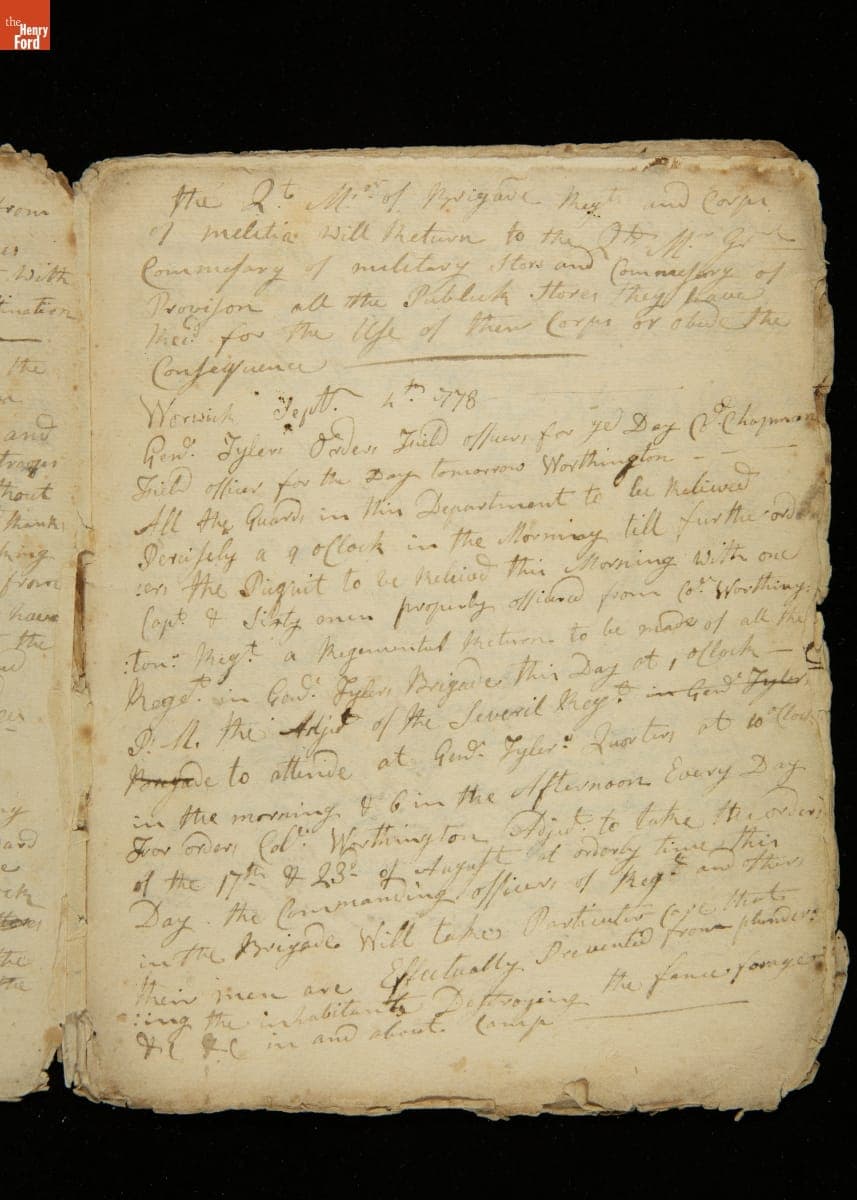 the
Henry
Ford
from
with
tination
the
and
troops
thout
thanks
from
have
the
the
the Qt. Mrs. of Brigade Regts and Corps
of melitia will Return to the Qtr Mr Gnl
Commesary of military Stors and Commesary of
Provison all the Publick Stores they have
Recd for the Use of their Corps or obide the
Consequence
Worwick Sept. 4th 1778
Genl. Tylers Orders Field officers for ye Day Col Chapman
Field officer for the Day tomorrow Worthington
All the Guards in this Department to be Relieved
Percisely a 9 oClock in the Morning till furthe orde
:ers the Piquit to be Relieved this Morning with one
Capt. & Sixty men properly officered from Col. Worthing:
:tons Regt. a Regemental Return to be made of all the
Regt. in Genl. Tylers Brigade this Day at 1 oClock
P. M. the Adjt of the Severil Regt. in Genl Tylers
Brigade to attende at Genl. Tylers Quorters at 10 oClock
in the morning & 6 in the Afternoon Every Day
For orders Col. Worthington Adjt. to take the orders
of the 17th & 23d of August at orderly time this
Day. the Commanding officers of Regt. and others
in the Brigade Will take Particuler Care that
their men are Effectually Prevented from plunder:
:ing the inhabitants Destroying the fence forage
&C &C in and about Camp